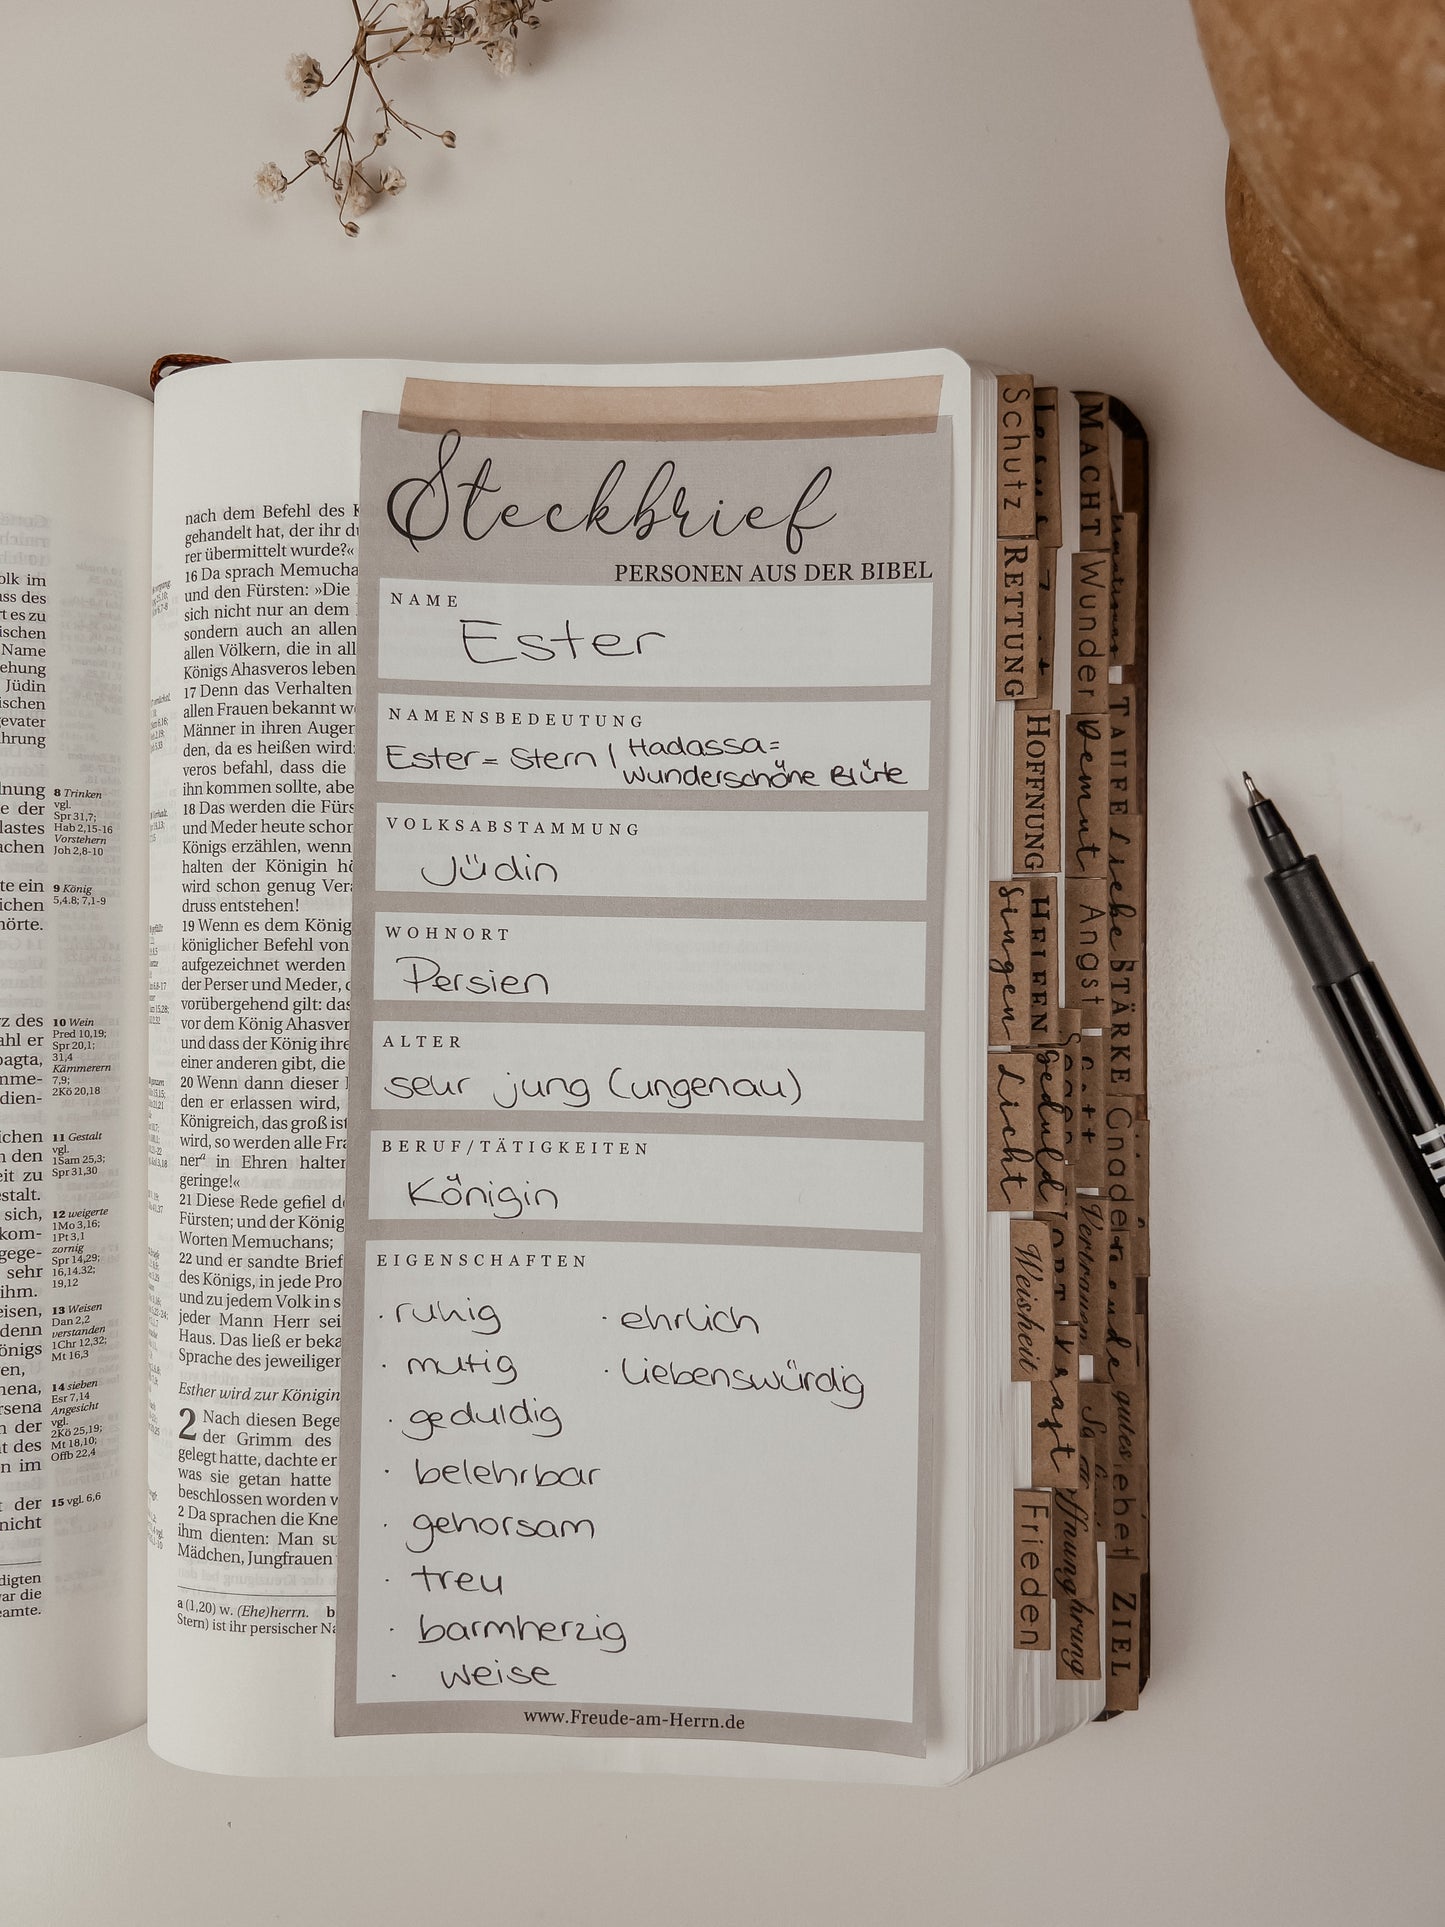 olk im
ss des
rt es zu
ischen
Name
ehung
Jüdin
ischen
gevater
hrung
dnung
e der
lastes
achen
te ein
ichen
hörte.
z des
ahl er
bagta,
mme-
dien-
ichen
n den
eit zu
estalt.
sich,
kom-
gege-
sehr
ihm.
eisen,
denn
önigs
en,
mena,
rsena
n der
t des
n im
t der
nicht
digten
ar die
eamte.
8 Trinken
vgl.
Spr 31,7;
Hab 2,15-16
Vorstehern
Joh 2,8-10
9 König
5,4.8; 7,1-9
10 Wein
Pred 10,19;
Spr 20,1;
31,4
Kämmerern
7,9;
2Kö 20,18
11 Gestalt
vgl.
1Sam 25,3;
Spr 31,30
12 weigerte
1Mo 3,16;
1Pt 3,1
zornig
Spr 14,29;
16,14.32;
19,12
13 Weisen
Dan 2,2
verstanden
1Chr 12,32;
Mt 16,3
14 sieben
Esr 7,14
Angesicht
vgl.
2Kö 25,19;
Mt 18,10;
Offb 22,4
15 vgl. 6,6
nach dem Befehl des K
gehandelt hat, der ihr du
rer übermittelt wurde?«
16 Da sprach Memucha
und den Fürsten: »Die
sich nicht nur an dem
sondern auch an allen
allen Völkern, die in all
Königs Ahasveros leben
17 Denn das Verhalten
allen Frauen bekannt we
Männer in ihren Augen
den, da es heißen wird:
veros befahl, dass die
ihn kommen sollte, abe
18 Das werden die Fürs
und Meder heute schon
Königs erzählen, wenn
halten der Königin hö
wird schon genug Vera
druss entstehen!
19 Wenn es dem König
königlicher Befehl von
aufgezeichnet werden
der Perser und Meder, d
vorübergehend gilt: das
vor dem König Ahasver
und dass der König ihre
einer anderen gibt, die
20 Wenn dann dieser
den er erlassen wird,
Königreich, das groß ist
wird, so werden alle Fra
ner a in Ehren halten
geringe!«
21 Diese Rede gefiel de
Fürsten; und der König
Worten Memuchans;
22 und er sandte Brief
des Königs, in jede Pro
und zu jedem Volk in s
jeder Mann Herr sei
Haus. Das ließ er beka
Sprache des jeweiligen
Esther wird zur Königin
2 Nach diesen Bege
der Grimm des
gelegt hatte, dachte er
was sie getan hatte
beschlossen worden w
2 Da sprachen die Kne
ihm dienten: Man su
Mädchen, Jungfrauen
a (1,20) w. (Ehe)herrn. b
Stern) ist ihr persischer Na
Steckbrief
PERSONEN AUS DER BIBEL
NAME
Ester
NAMENSBEDEUTUNG
Ester = Stern | Hadassa =
wunderschöne Blüte
VOLKSABSTAMMUNG
Jüdin
WOHNORT
Persien
ALTER
sehr jung (ungenau)
BERUF/TÄTIGKEITEN
Königin
EIGENSCHAFTEN
· ruhig · ehrlich
· mutig · liebenswürdig
· geduldig
· belehrbar
· gehorsam
· treu
· barmherzig
· weise
www.Freude-am-Herrn.de
Schutz
RETTUNG
HOFFNUNG
singen
HELFEN
Licht
geduld
Weisheit
Frieden
MACHT
Wunder
Demut
Angst
Gott
Vertrauen
TAUFE
Liebe
STÄRKE
Gnade
ZIEL